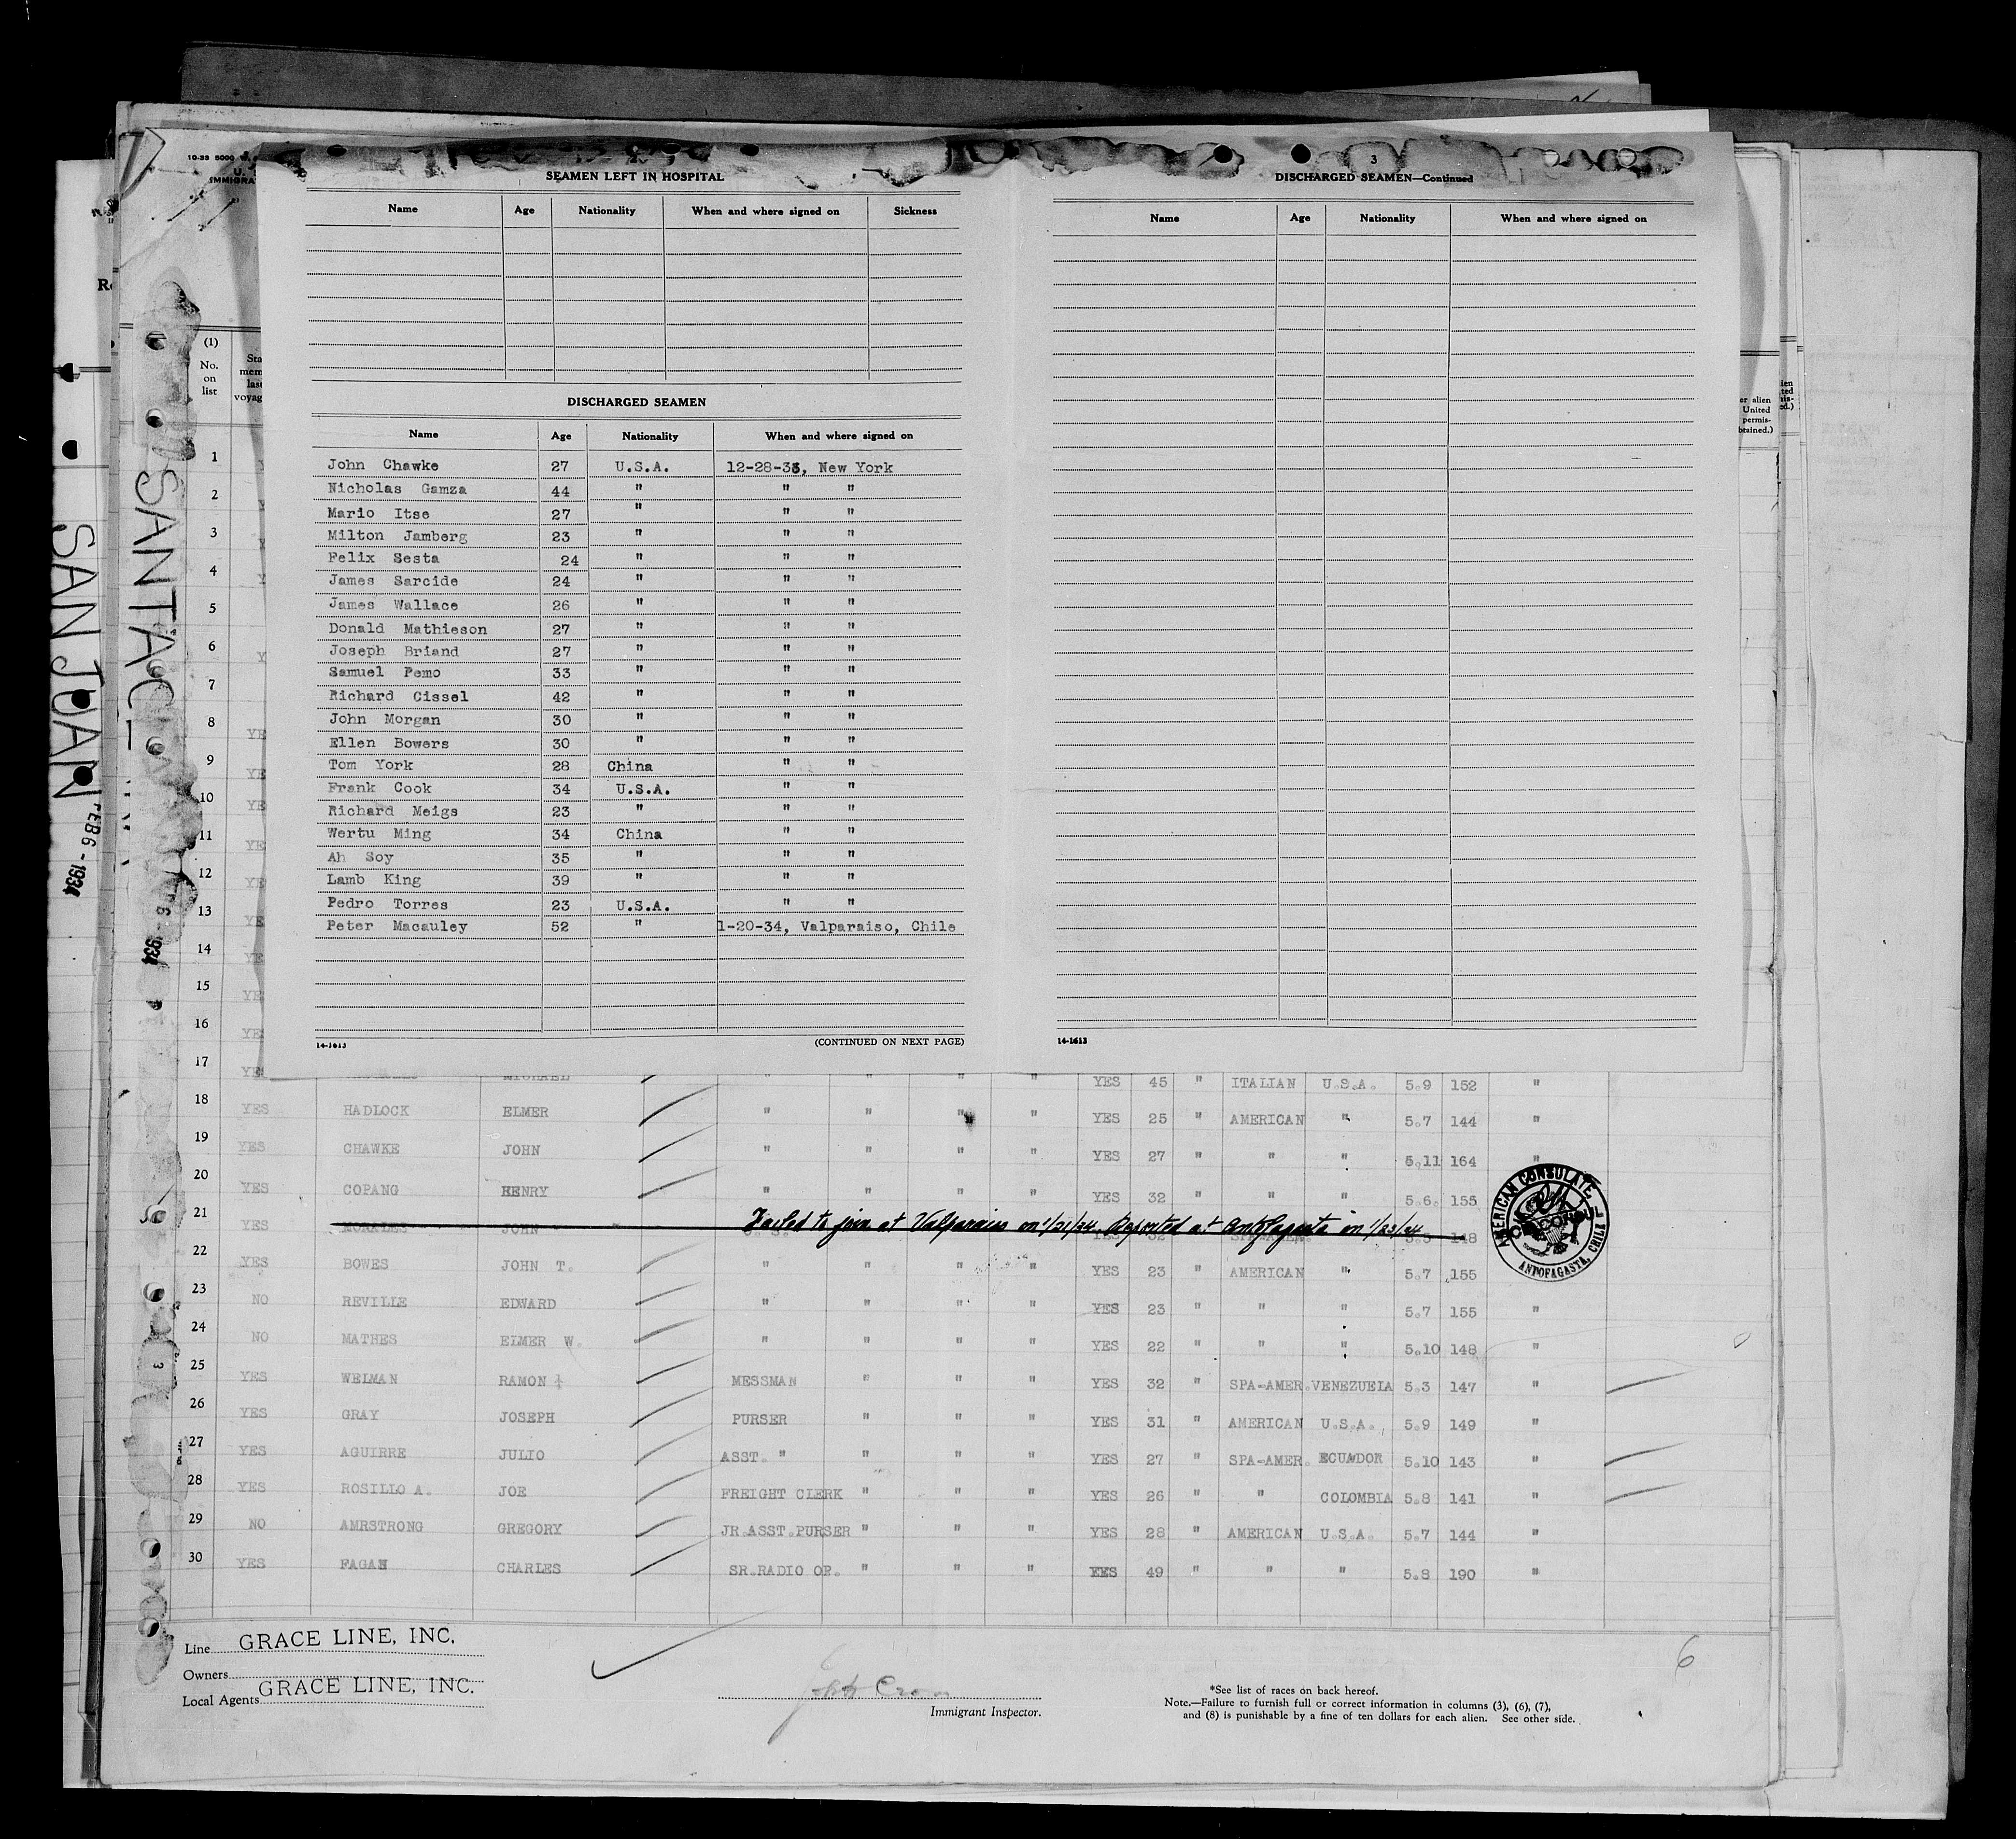 10-33 5000
U.
IMMIGRA
SEAMEN LEFT IN HOSPITAL
Name Age Nationality When and where signed on Sickness
DISCHARGED SEAMEN
Name Age Nationality When and where signed on
John Chawke 27 U.S.A. 12-28-33, New York
Nicholas Gamza 44 " " "
Mario Itse 27 " " "
Milton Jamberg 23 " " "
Felix Sesta 24 " " "
James Sarcide 24 " " "
James Wallace 26 " " "
Donald Mathieson 27 " " "
Joseph Briand 27 " " "
Samuel Pemo 33 " " "
Richard Cissel 42 " " "
John Morgan 30 " " "
Ellen Bowers 30 " " "
Tom York 28 China " "
Frank Cook 34 U.S.A. " "
Richard Meigs 23 " " "
Wertu Ming 34 China " "
Ah Soy 35 " " "
Lamb King 39 " " "
Pedro Torres 23 U.S.A. " "
Peter Macauley 52 " 1-20-34, Valparaiso, Chile
14-1613 (CONTINUED ON NEXT PAGE)
3
DISCHARGED SEAMEN—Continued
Name Age Nationality When and where signed on
14-1613
SAN JUAN
FEB 6 - 1934
SANTA C
6 - 1934
(1)
No.
on
list
Sta
mem
last
voyag
er alien
United
permis-
btained.)
1
2
3
4
5
6
7
8 YE
9 YE
10 YE
11 YE
12 YE
13 YE
14 YE
15 YE
16 YE
17 YES MICHAEL " " " " YES 45 " ITALIAN U.S.A. 5.9 152 "
18 YES HADLOCK ELMER " " " " YES 25 " AMERICAN " 5.7 144 "
19 YES CHAWKE JOHN " " " " YES 27 " " " 5.11 164 "
20 YES COPANG HENRY " " " " YES 32 " " " 5.6. 155
21 YES MORALES JOHN Failed to join at Valparaiso on 1/21/34. Reported at Antofagasta on 1/23/34 148
22 YES BOWES JOHN T. " " " " YES 23 " AMERICAN " 5.7 155
23 NO REVILLE EDWARD " " " " YES 23 " " " 5.7 155 "
24 NO MATHES ELMER W. " " " " YES 22 " " " 5.10 148 "
25 YES WELMAN RAMON MESSMAN " " " YES 32 " SPA-AMER. VENZUELA 5.3 147 "
26 YES GRAY JOSEPH PURSER " " " YES 31 " AMERICAN U.S.A. 5.9 149 "
27 YES AGUIRRE JULIO ASST. " " " " YES 27 " SPA-AMER. ECUADOR 5.10 143 "
28 YES ROSILLO A. JOE FREIGHT CLERK " " " YES 26 " " COLOMBIA 5.8 141 "
29 NO AMRSTRONG GREGORY JR.ASST.PURSER " " " YES 28 " AMERICAN U.S.A. 5.7 144 "
30 YES FAGAN CHARLES SR.RADIO OP. " " " YES 49 " " " 5.8 190 "
AMERICAN CONSULATE
ANTOFAGASTA, CHILE
Line GRACE LINE, INC.
Owners
Local Agents GRACE LINE, INC.
Immigrant Inspector.
*See list of races on back hereof.
Note.—Failure to furnish full or correct information in columns (3), (6), (7),
and (8) is punishable by a fine of ten dollars for each alien. See other side.
6